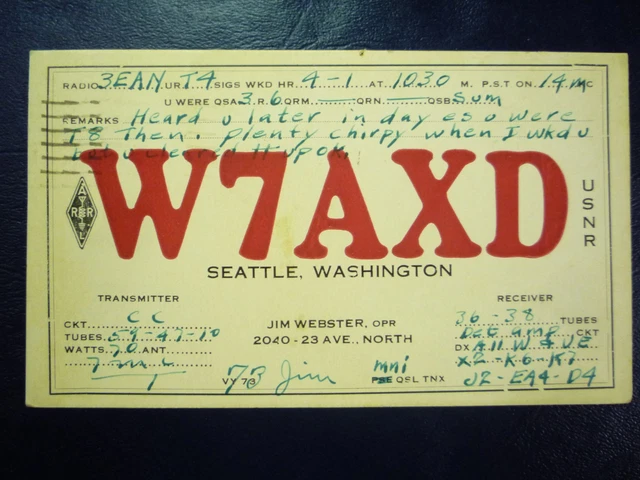 RADIO 3EAN UR T4 SIGS WKD HR 4-1 AT 1030 M. P.S.T ON 14 MC
U WERE QSA 3 R. 6 QRM QRN QSB Sum
REMARKS Heard u later in day es u were
T8 Then. plenty chirpy when I wkd u
but u cleared it up OK.
W7AXD
ARRL
USNR
SEATTLE, WASHINGTON
TRANSMITTER
CKT. CC
TUBES 59-47-10
WATTS 70 ANT.
JIM WEBSTER, OPR
2040 - 23 AVE., NORTH
VY 73 73 Jim
RECEIVER
36-38 TUBES
Det amp CKT
DX All W & VE
X2-K6-K7
J2-EA4-D4
mni
PSE QSL TNX